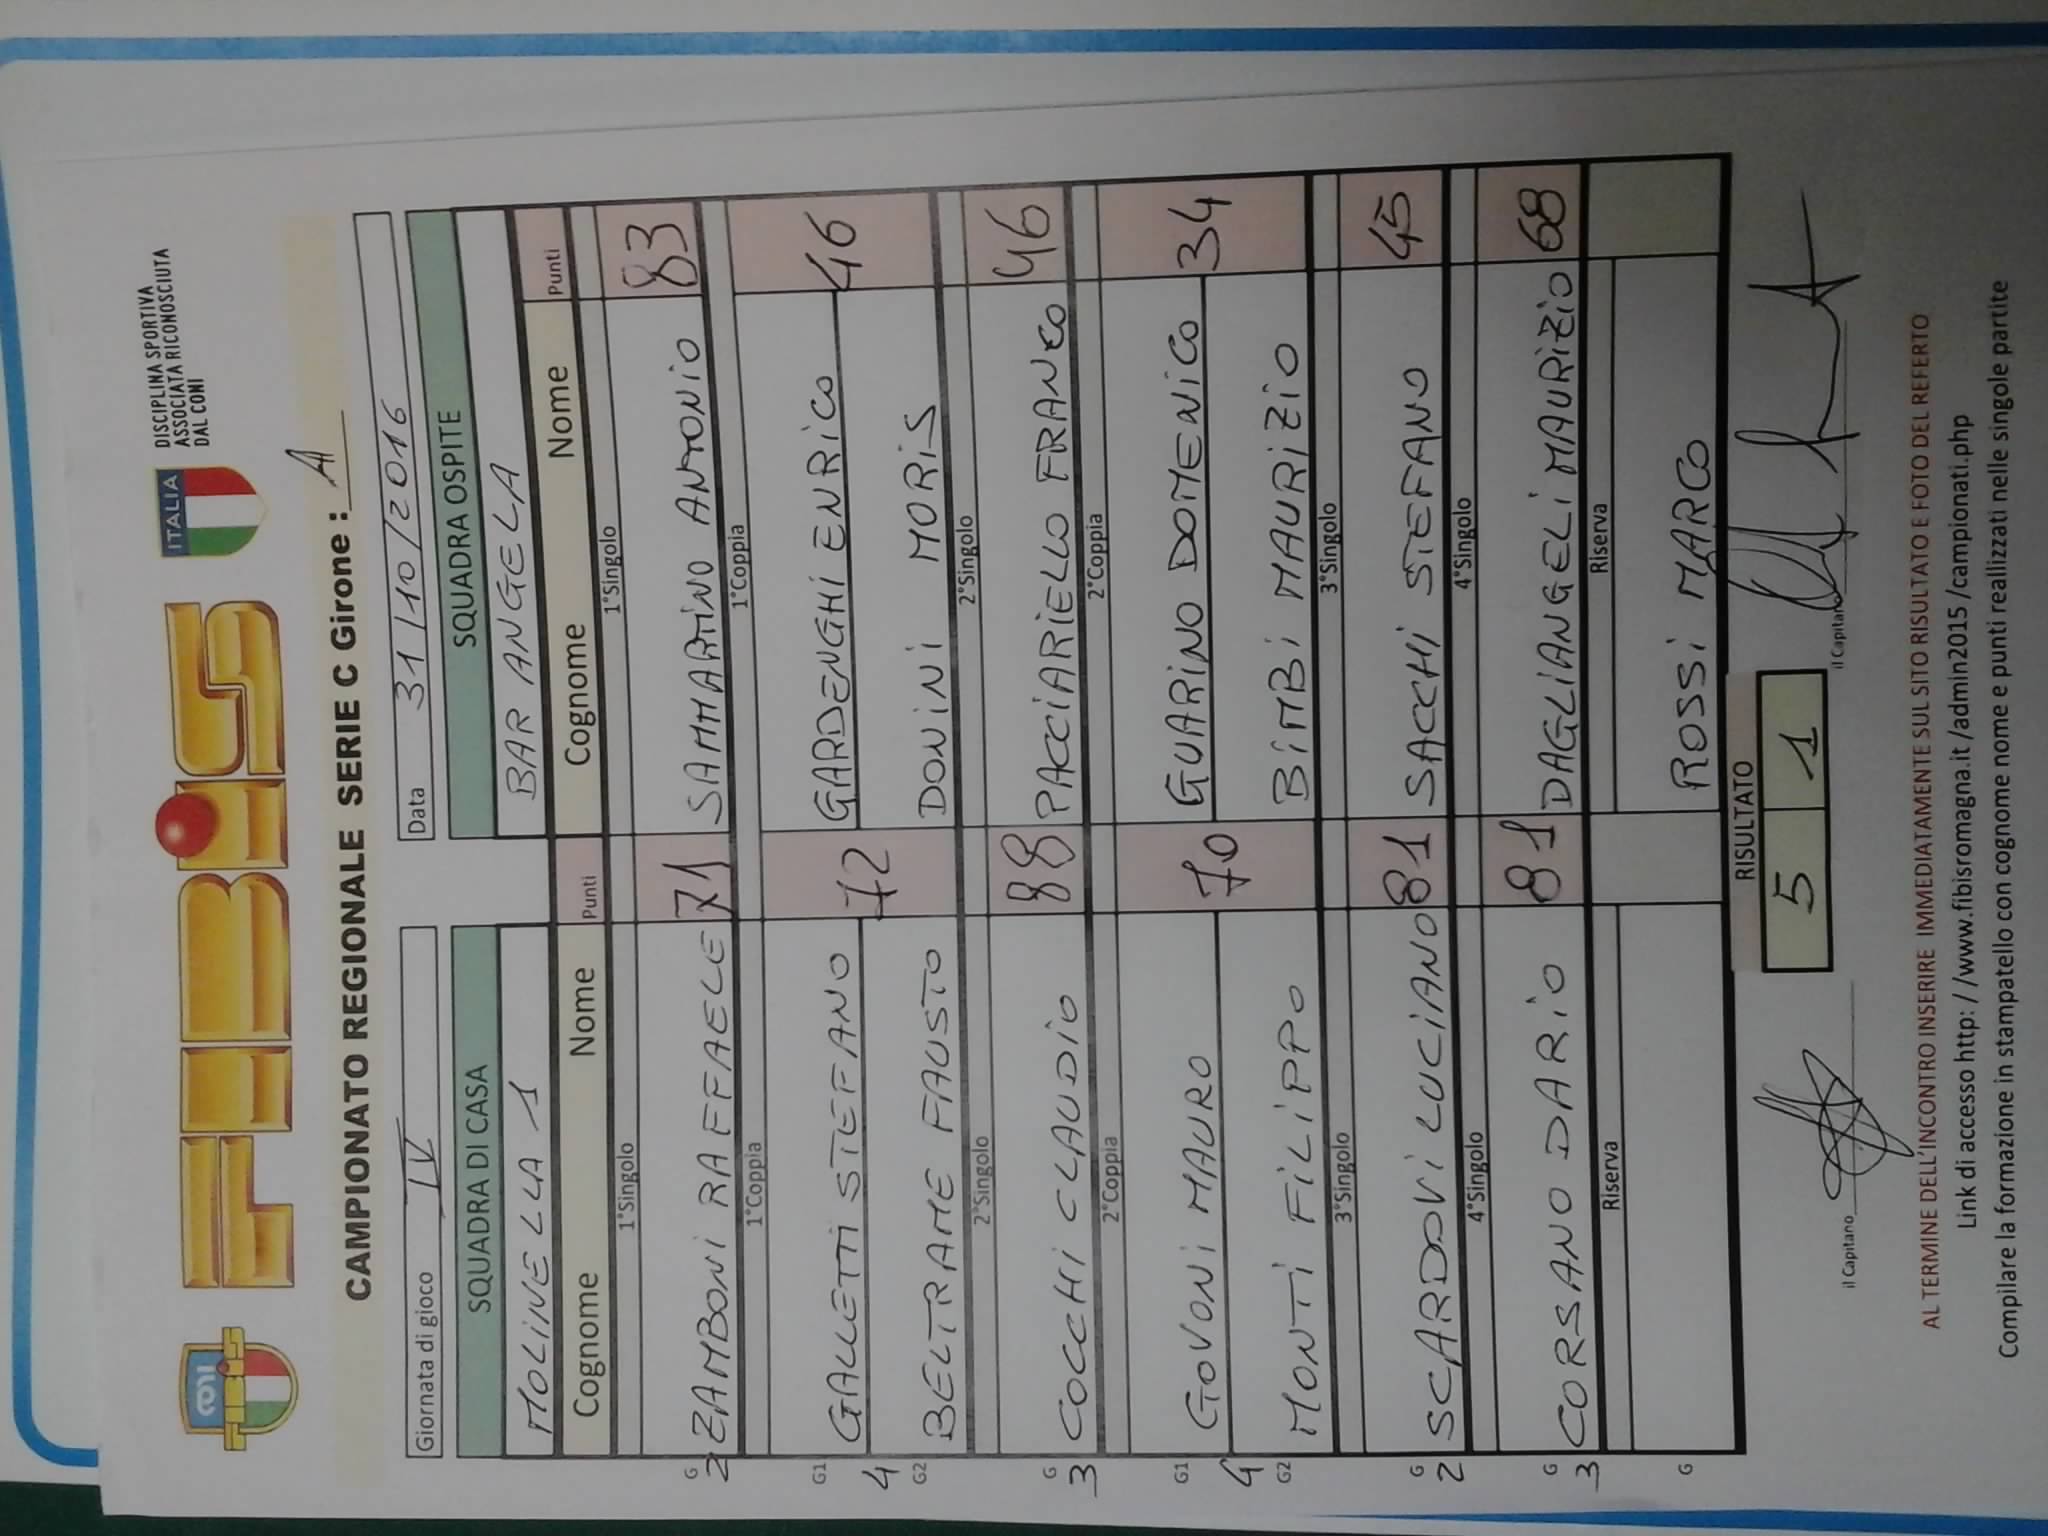 FIBiS
CONI
FIBiS
ITALIA
DISCIPLINA SPORTIVA
ASSOCIATA RICONOSCIUTA
DAL CONI
CAMPIONATO REGIONALE SERIE C Girone : A
Giornata di gioco IV Data 31/10/2016
SQUADRA DI CASA SQUADRA OSPITE
MOLINELLA 1 BAR ANGELA
Cognome Nome Punti Cognome Nome Punti
1°Singolo 1°Singolo
G 2 ZAMBONI RAFFAELE 71 SAMMARTINO ANTONIO 83
1°Coppia 1°Coppia
G1 GALLETTI STEFANO GARDENGHI ENRICO
4 72 46
G2 BELTRAME FAUSTO DONINI MORIS
2°Singolo 2°Singolo
G 3 COCCHI CLAUDIO 88 PACCIARIELLO FRANCO 46
2°Coppia 2°Coppia
G1 GOVONI MAURO GUARINO DOMENICO
4 70 34
G2 MONTI FILIPPO BIMBI MAURIZIO
3°Singolo 3°Singolo
G 2 SCARDOVI LUCIANO 81 SACCHI STEFANO 45
4°Singolo 4°Singolo
G 3 CORSANO DARIO 81 DAGLIANGELI MAURIZIO 68
Riserva Riserva
G ROSSI MARCO
RISULTATO
5 1
il Capitano il Capitano
AL TERMINE DELL'INCONTRO INSERIRE IMMEDIATAMENTE SUL SITO RISULTATO E FOTO DEL REFERTO
Link di accesso http: / /www.fibisromagna.it /admin2015 /campionati.php
Compilare la formazione in stampatello con cognome nome e punti reallizzati nelle singole partite